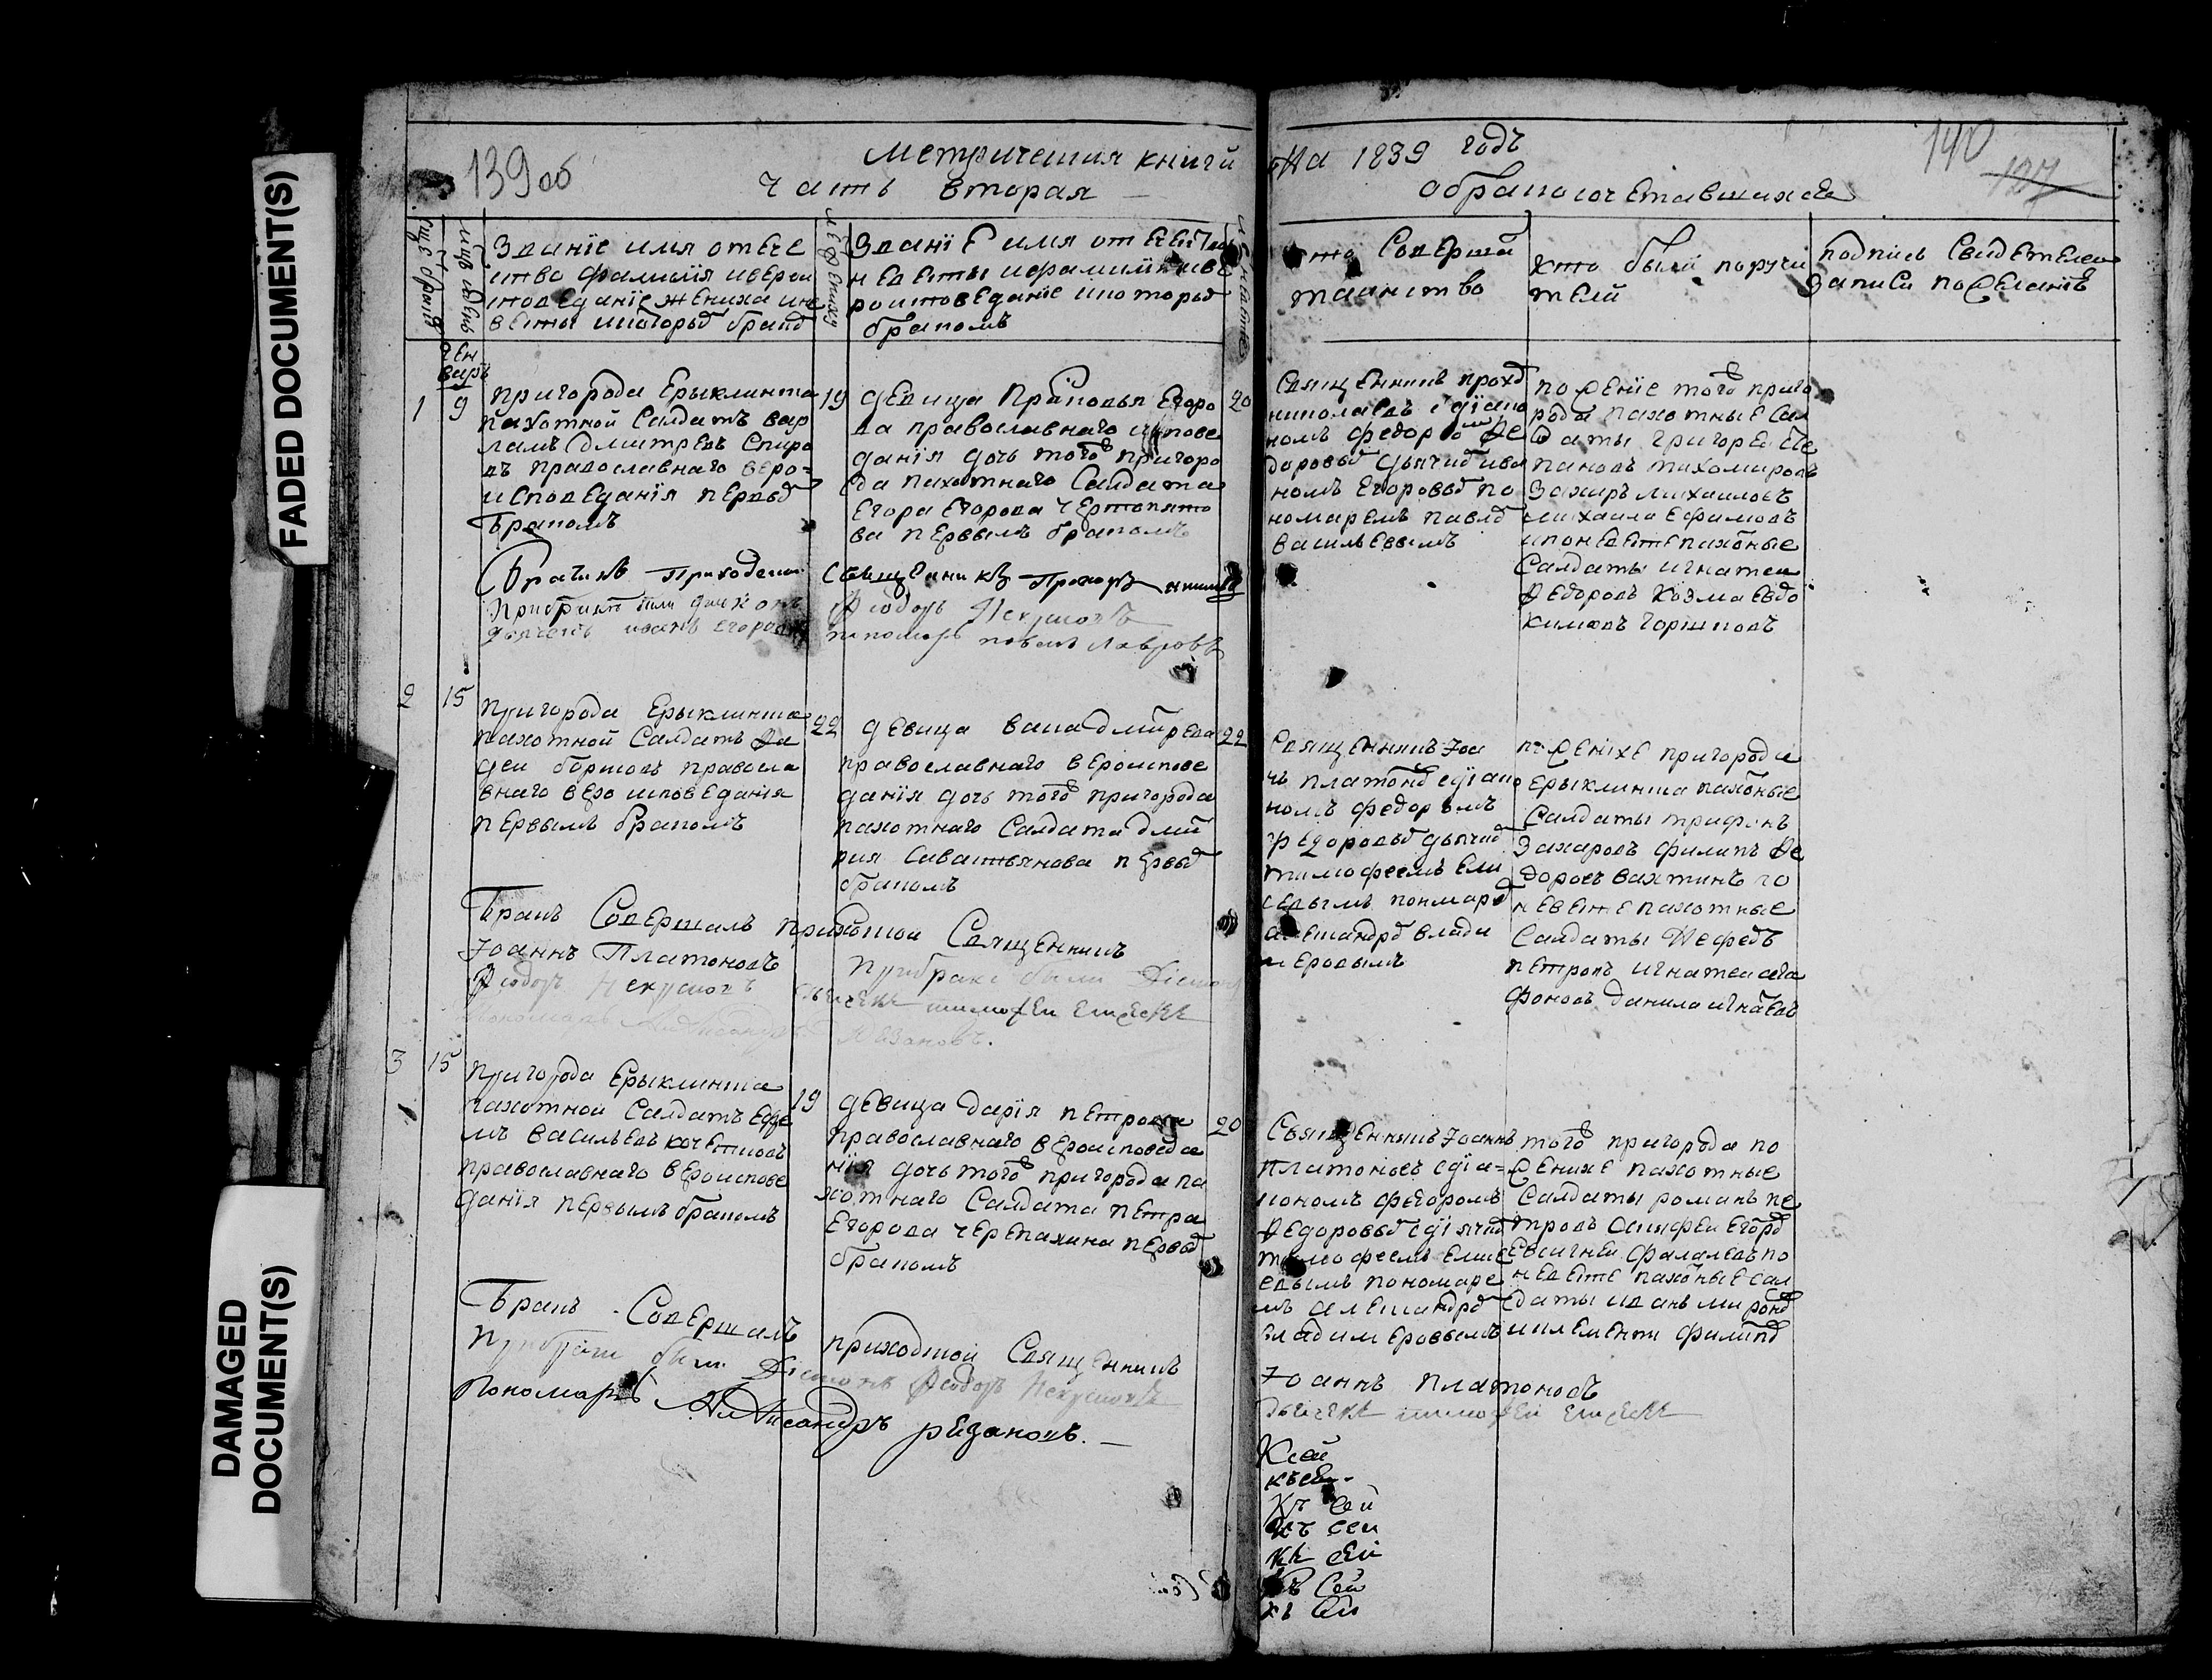 FADED DOCUMENT(S)
DAMAGED DOCUMENT(S)
139 об
140
127
Метрическия книги на 1839 годъ
часть вторая о бракосочетавшихся
Званiе имя отече
ство фамилiя и верои
споведанiе жениха и не
весты и которы бракъ
Званiе имя отечество
невесты и фамилия и ве
роисповеданiе и которы
бракомъ
кто соверша
таинство
кто были поручи
тели
подпись свидетелей
записи по желанiю
Ген
варь
1
9
пригорода Ерыклинска
пахотной Салдатъ вар
ламъ Дмитревъ Спиро
въ православнаго веро=
исповеданiя первы
бракомъ
19
девица Праповья Егоро
ва православнаго испове
данiя дочь того пригоро
да пахотнаго Салдата
Егора Егорова
ва первымъ бракомъ
20
Священникъ прох
николаевъ с дiако
номъ федоромъ Фе
доровы дьячи ива
номъ Егоровы по
номаремъ павл
васильевымъ
по жение того приго
рода пахотные Сал
даты григоре Сте
пановъ тихомировъ
Захаръ михаиловъ
михаила Ефимовъ
и по невесте пахоные
Салдаты игнатеи
Федоровъ Козма Евдо
кимовъ горшковъ
Приходскии Священникъ Прохоръ
При браке были диаконъ Феодоръ
дьячекъ иванъ Егоровъ пономарь павелъ Лавровъ
2
15
пригорода Ерыклинска
пахотной Салдатъ Фа
деи борисовъ правосла
внаго вероисповеданiя
первымъ бракомъ
22
девица васа дмитрева
православнаго вероиспове
данiя дочь того пригорода
пахотнаго Салдата дми
рия Савастьянова первы
бракомъ
22
Священникъ Iоа
нъ платоно с дiако
номъ федоромъ
Федоровы дьячи
тимофеемъ Ели
севымъ понмаре
алешандр влади
меровымъ
по женихе пригорода
Ерыклинска пахоные
Салдаты трифонъ
Захаровъ филипъ Фе
доровъ вахтинъ по
невесте пахотные
Салдаты Нефедъ
петровъ игнатеи ага
фоновъ данила игнаевъ
Бракъ Совершалъ приходскои Священникъ
Iоаннъ Платоновъ При браке были Дiаконъ
Феодоръ дьячекъ тимофеи Елисевъ
пономарь Александръ Рѣзановъ.
3
15
пригорода Ерыклинска
пахотной Салдатъ Ефе
мъ васильевъ кочетковъ
православнаго вероиспове
данiя первымъ бракомъ
19
девица дарiя петрова
православнаго вероисповеда
нiя дочь того пригорода па
хотнаго Салдата петра
Егорова черепахина первы
бракомъ
20
Священникъ Iоаннъ
платоновъ с дiа=
кономъ федоромъ
Федоровы с дiячи
тимофеемъ Елис
евымъ пономаре
мъ алешандр
владимеровымъ
того пригорода по
женихе пахотные
Салдаты романъ пе
тровъ Егор
Евсигнеи фалалевъ по
невесте пахоные сал
даты иванъ мирон
и климентеи филип
Бракъ Совершалъ приходскои Священникъ Iоаннъ платоновъ
При браке были Дiаконъ Феодоръ дьячекъ тимофеи Елисевъ
Пономарь Александръ рѣзановъ.
К сей
къ сей
Къ сей
Къ сей
Къ сей
Къ сей
къ сей